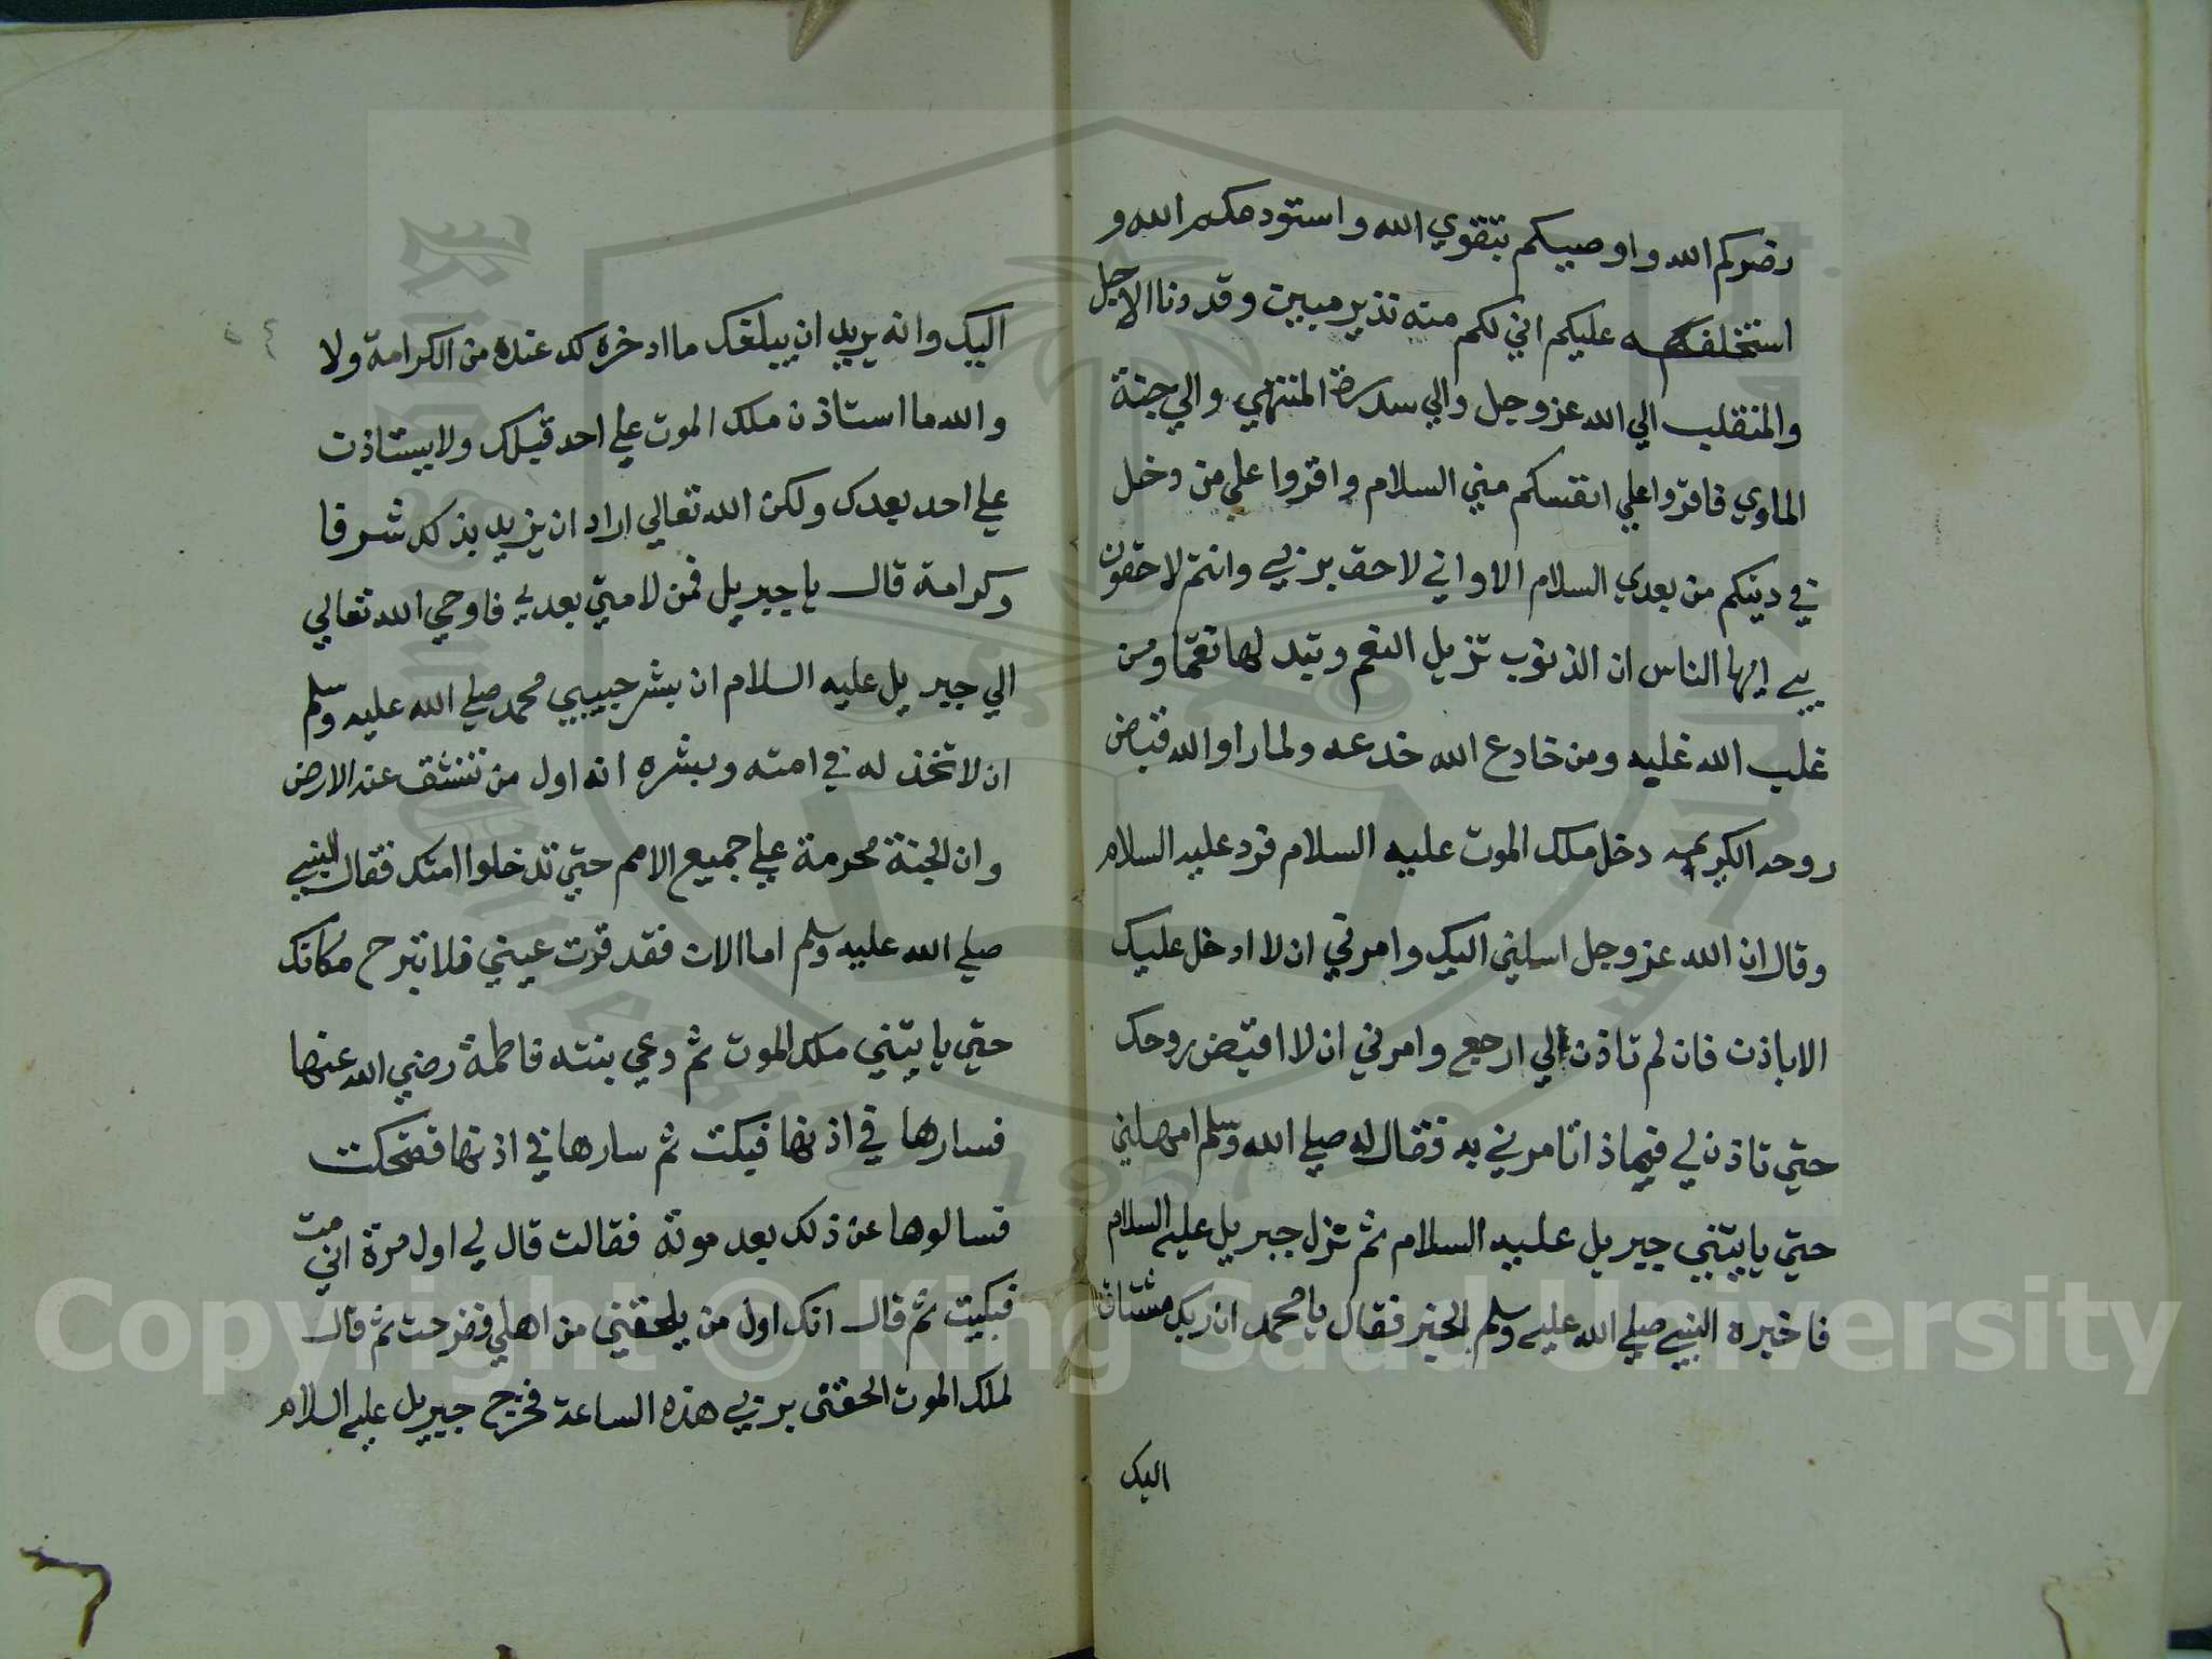 رضوكم الله واوصيكم بتقوي الله واستودعكم الله و
استخلفه عليكم اني لكم منه نذير مبين وقد دنا الاجل
والمنقلب الي الله عز وجل والي سدرة المنتهي والي جنة
الماوي فاقروا علي انفسكم مني السلام واقروا علي من دخل
في دينكم من بعدي السلام الا واني لاحق بربي وانتم لاحقون
بي ايها الناس ان الذنوب تزيل النعم وتبدلها نقما ومن
غلب الله غلبه ومن خادع الله خدعه ولما اراد الله قبض
روحه الكريمه دخل ملك الموت عليه السلام فرد عليه السلام
وقال ان الله عز وجل ارسلني اليك وامرني ان لا ادخل عليك
الا باذن فان لم تاذن لي ارجع وامرني ان لا اقبض روحك
حتي تاذن لي فبماذا تامرني به فقال له صلي الله وسلم امهلني
حتي ياتيني جبريل عليه السلام ثم نزل جبريل عليه السلام
فاخبره النبي صلي الله عليه وسلم الخبر فقال يا محمد ان ربك مشتاق
اليك
اليك وانه يريد ان يبلغك ما ادخره لك عنده من الكرامة ولا
والله ما استاذن ملك الموت علي احد قبلك ولا يستاذن
علي احد بعدك ولكن الله تعالي اراد ان يزيد بذلك شرفا
وكرامة قال يا جبريل فمن لامتي بعدي فاوحي الله تعالي
الي جبريل عليه السلام ان بشر حبيبي محمد صلي الله عليه وسلم
ان لا تخذله في امته وبشره انه اول من تنشق عنه الارض
وان الجنة محرمة علي جميع الامم حتي تدخلوا امتك فقال النبي
صلي الله عليه وسلم اما الان فقد قرت عيني فلا تبرح مكانك
حتي ياتيني ملك الموت ثم دعي بنته فاطمة رضي الله عنها
فسارها في اذنها فبكت ثم سارها في اذنها فضحكت
فسالوها عن ذلك بعد موته فقالت قال لي اول مرة اني ميت
فبكيت ثم قال انك اول من يلحقني من اهلي ففرحت ثم قال
لملك الموت الحقني بربي هذه الساعة فخرج جبريل عليه السلام
Copyright © King Saud University
1957